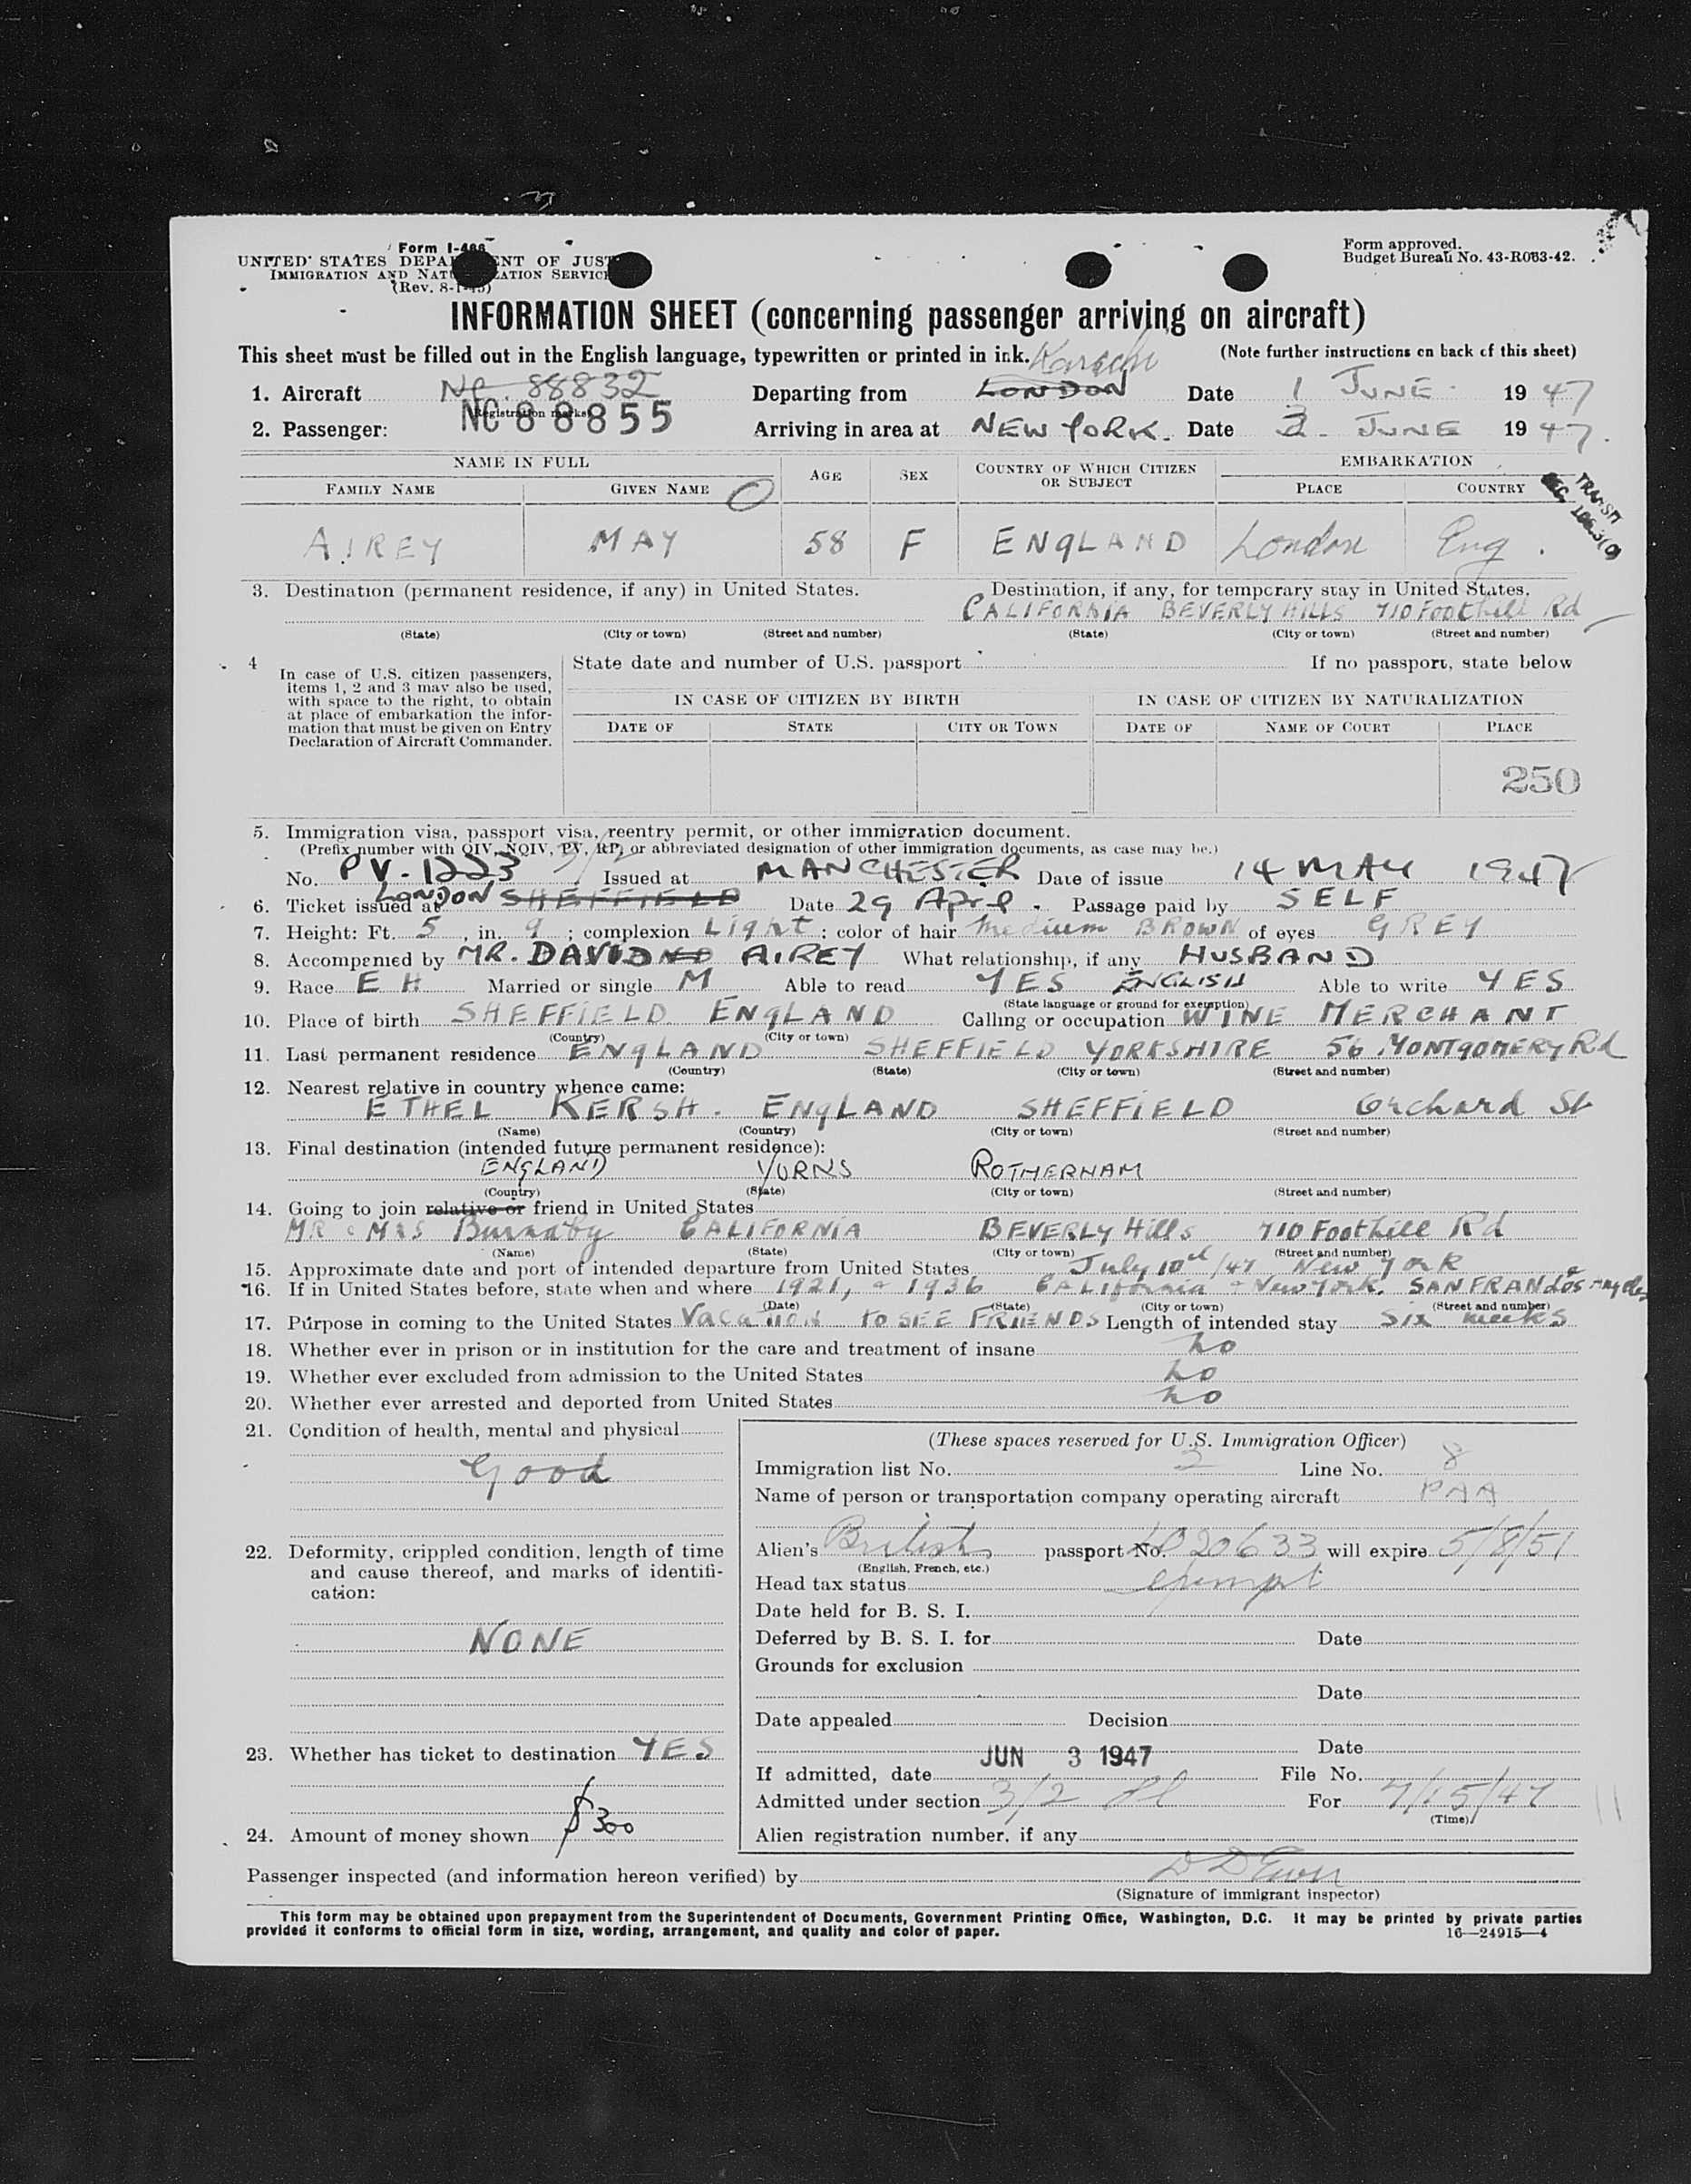 Form I-466
UNITED STATES DEPARTMENT OF JUSTICE
IMMIGRATION AND NATURALIZATION SERVICE
(Rev. 8-1-45)
Form approved.
Budget Bureau No. 43-R063-42.
INFORMATION SHEET (concerning passenger arriving on aircraft)
This sheet must be filled out in the English language, typewritten or printed in ink. (Note further instructions on back of this sheet)
Karachi
1. Aircraft NC. 88832 Departing from LONDON Date 1 JUNE 1947
(Registration marks)
NC 88855
2. Passenger: Arriving in area at NEW YORK. Date 3. JUNE 1947.
NAME IN FULL AGE SEX COUNTRY OF WHICH CITIZEN OR SUBJECT EMBARKATION
FAMILY NAME GIVEN NAME PLACE COUNTRY
AIREY MAY 58 F ENGLAND London Eng.
TRANSIT
3. Destination (permanent residence, if any) in United States. Destination, if any, for temporary stay in United States.
CALIFORNIA BEVERLY HILLS 710 Foothill Rd
(State) (City or town) (Street and number) (State) (City or town) (Street and number)
4 In case of U.S. citizen passengers, items 1, 2 and 3 may also be used, with space to the right, to obtain at place of embarkation the information that must be given on Entry Declaration of Aircraft Commander.
State date and number of U.S. passport If no passport, state below
IN CASE OF CITIZEN BY BIRTH IN CASE OF CITIZEN BY NATURALIZATION
DATE OF STATE CITY OR TOWN DATE OF NAME OF COURT PLACE
250
5. Immigration visa, passport visa, reentry permit, or other immigration document.
(Prefix number with QIV, NQIV, PV, RP, or abbreviated designation of other immigration documents, as case may be.)
3/2
No. PV-1223 Issued at MANCHESTER Date of issue 14 MAY 1947
6. Ticket issued at LONDON SHEFFIELD Date 29 April. Passage paid by SELF
7. Height: Ft. 5, in. 9; complexion Light; color of hair Medium BROWN of eyes GREY
8. Accompanied by MR. DAVID AIREY What relationship, if any HUSBAND
9. Race E H Married or single M Able to read YES ENGLISH Able to write YES
(State language or ground for exemption)
10. Place of birth SHEFFIELD ENGLAND Calling or occupation WINE MERCHANT
(Country) (City or town)
11. Last permanent residence ENGLAND SHEFFIELD YORKSHIRE 56 MONTGOMERY Rd
(Country) (State) (City or town) (Street and number)
12. Nearest relative in country whence came:
ETHEL KERSH. ENGLAND SHEFFIELD Orchard St
(Name) (Country) (City or town) (Street and number)
13. Final destination (intended future permanent residence):
ENGLAND YORKS ROTHERHAM
(Country) (State) (City or town) (Street and number)
14. Going to join relative or friend in United States
MR & MRS Burnaby CALIFORNIA BEVERLY Hills 710 Foothill Rd
(Name) (State) (City or town) (Street and number)
15. Approximate date and port of intended departure from United States July 10th/47 New York
16. If in United States before, state when and where 1921, & 1936 CALIfornia & New York. SAN FRAN & Los Angeles
(Date) (State) (City or town) (Street and number)
17. Purpose in coming to the United States Vacation to SEE FRIENDS Length of intended stay six weeks
18. Whether ever in prison or in institution for the care and treatment of insane no
19. Whether ever excluded from admission to the United States no
20. Whether ever arrested and deported from United States no
21. Condition of health, mental and physical
Good
22. Deformity, crippled condition, length of time and cause thereof, and marks of identification:
NONE
23. Whether has ticket to destination YES
24. Amount of money shown $300
(These spaces reserved for U.S. Immigration Officer)
Immigration list No. 2 Line No. 8
Name of person or transportation company operating aircraft PAA
Alien's British passport No. 20633 will expire 5/8/51
(English, French, etc.)
Head tax status exempt
Date held for B. S. I.
Deferred by B. S. I. for Date
Grounds for exclusion
Date
Date appealed Decision
Date
If admitted, date JUN 3 1947 File No.
Admitted under section 3/2 For 7/15/47
(Time)
Alien registration number, if any
Passenger inspected (and information hereon verified) by
(Signature of immigrant inspector)
This form may be obtained upon prepayment from the Superintendent of Documents, Government Printing Office, Washington, D.C. It may be printed by private parties
provided it conforms to official form in size, wording, arrangement, and quality and color of paper.
16—24915—4